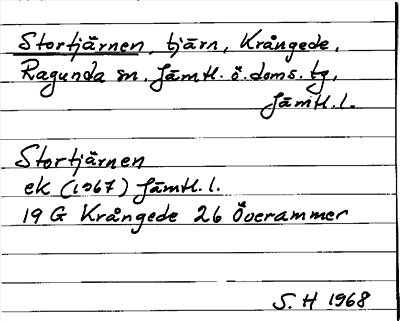 Stortjärnen, tjärn, Krångede,
Ragunda sn. Jämtl. ö. doms. tg,
Jämtl. l.
Stortjärnen
ek (1967) Jämtl. l.
19 G Krångede 26 Överammer
S. H 1968